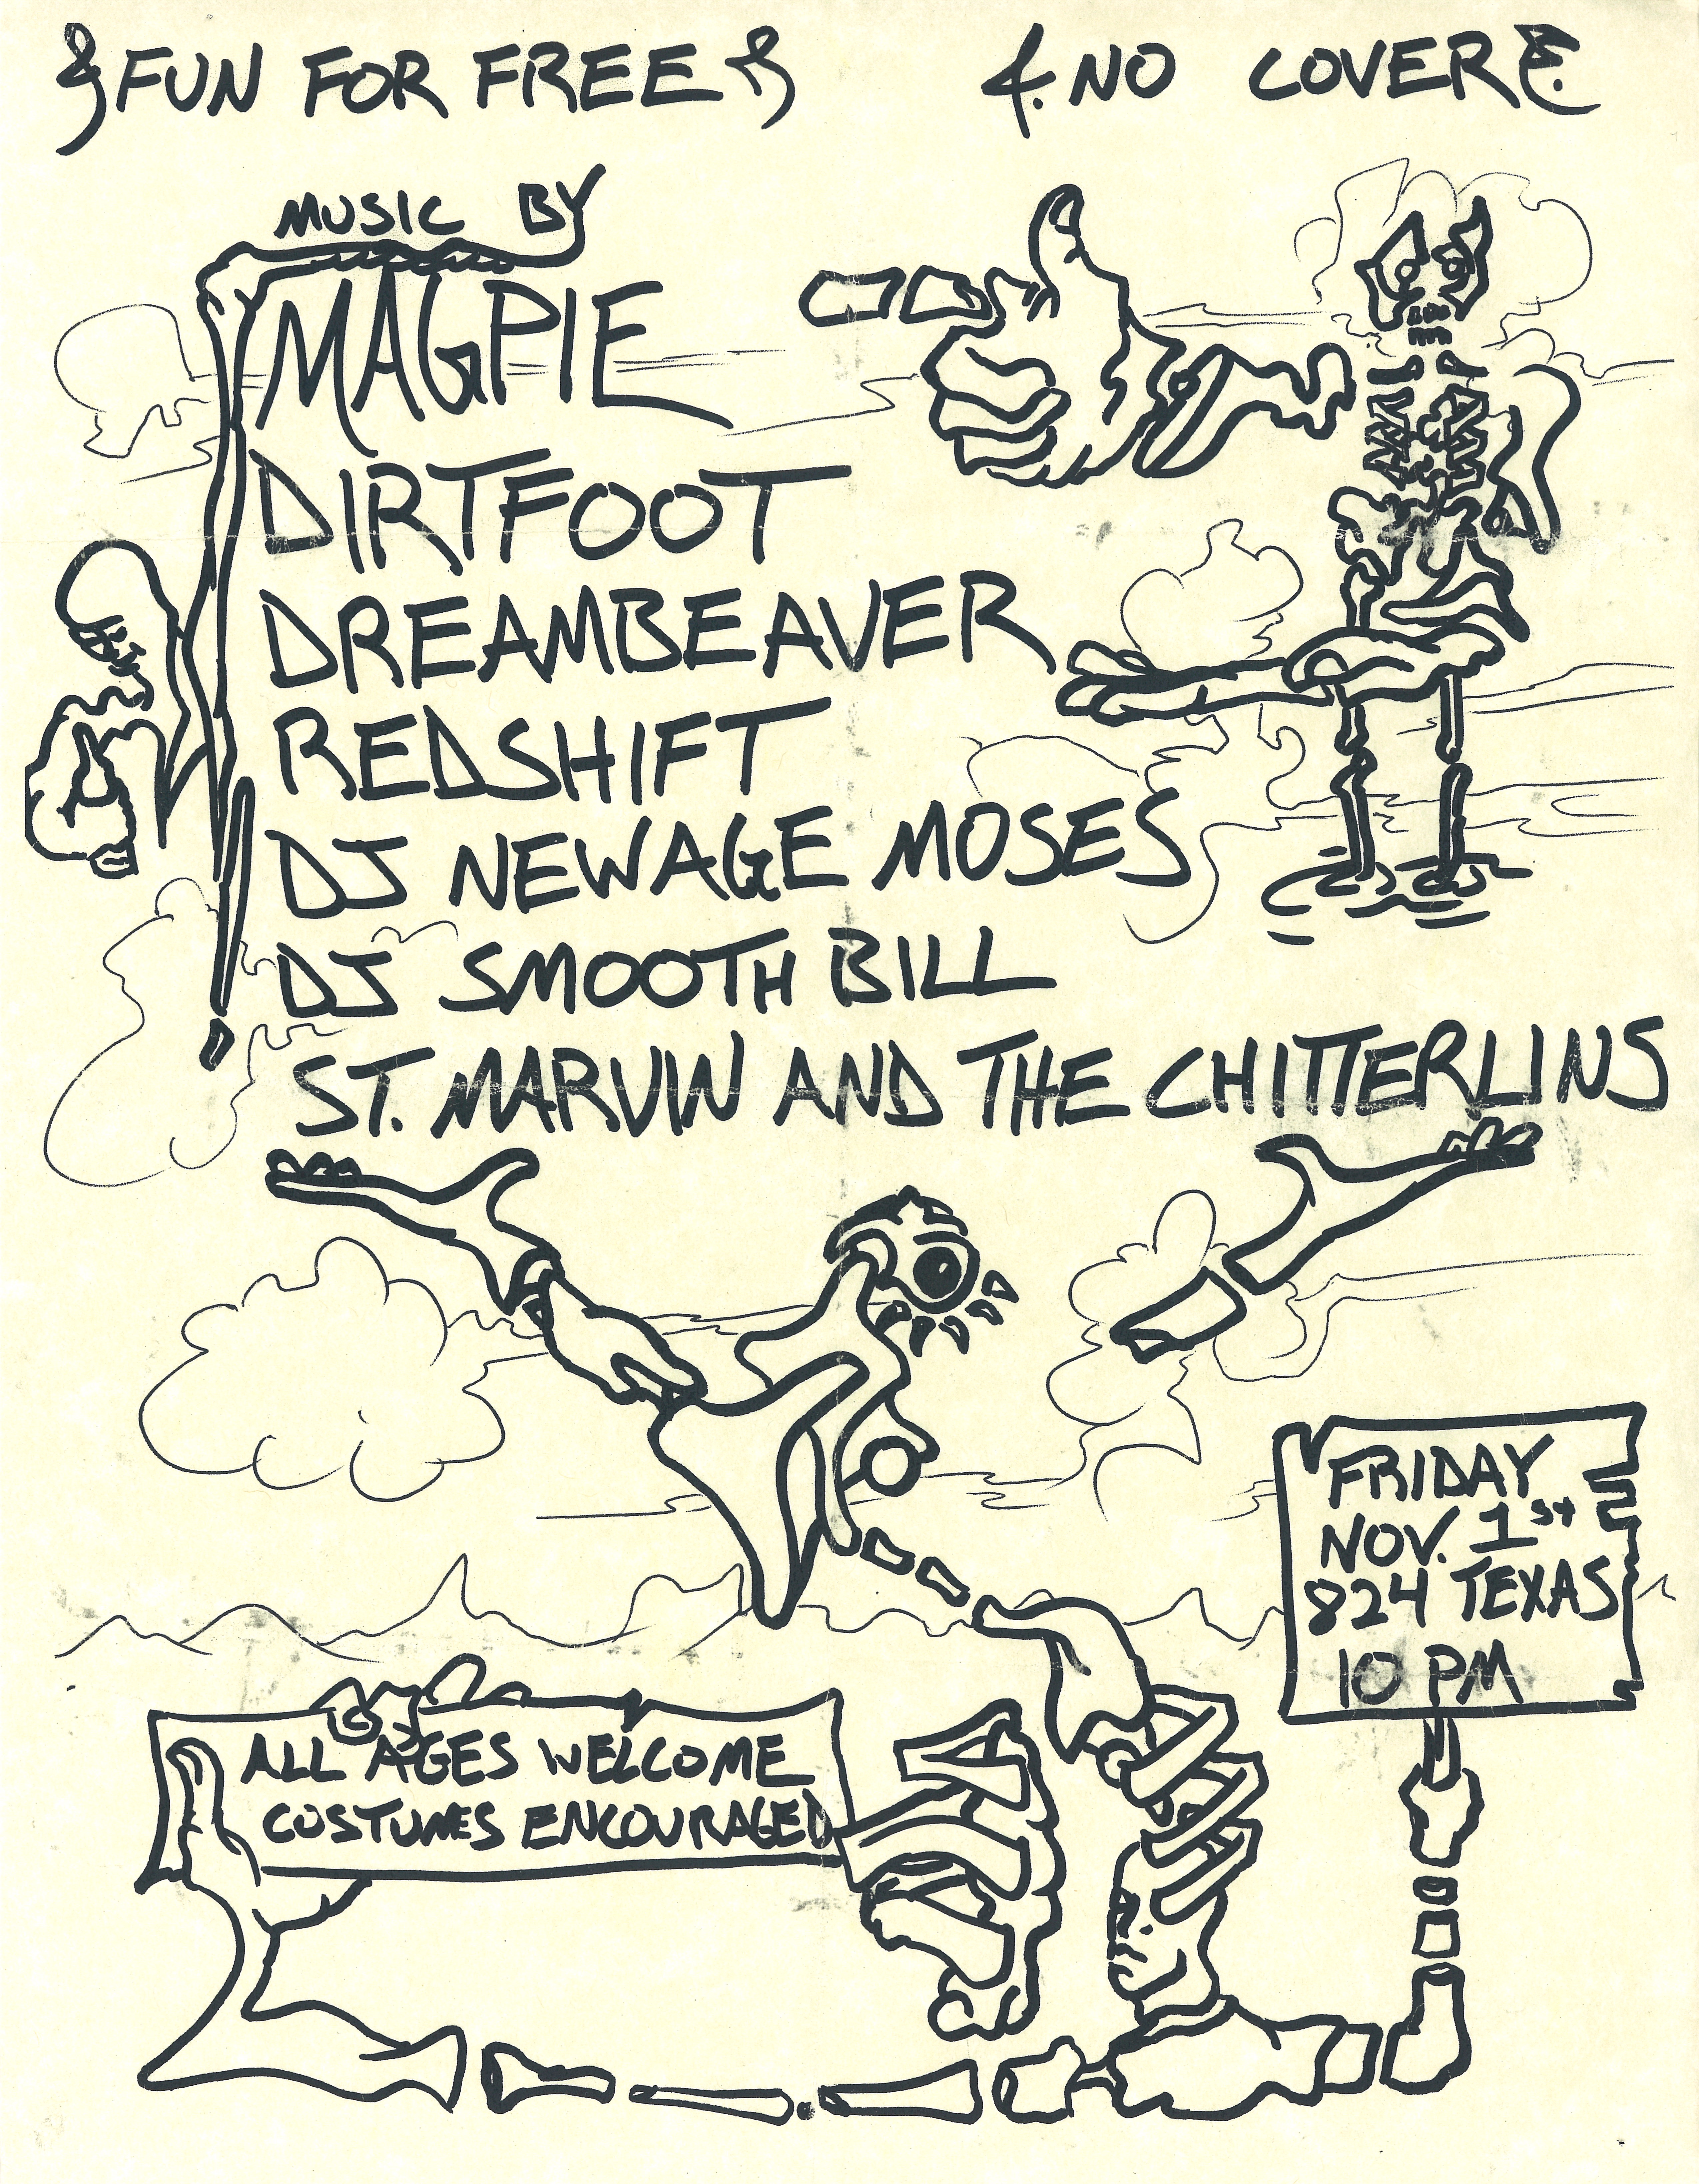 FUN FOR FREE
NO COVER
MUSIC BY
MAGPIE
DIRTFOOT
DREAMBEAVER
REDSHIFT
DJ NEWAGE MOSES
DJ SMOOTH BILL
ST. MARVIN AND THE CHITTERLINS
FRIDAY
NOV. 1st
824 TEXAS
10 PM
ALL AGES WELCOME
COSTUMES ENCOURAGED